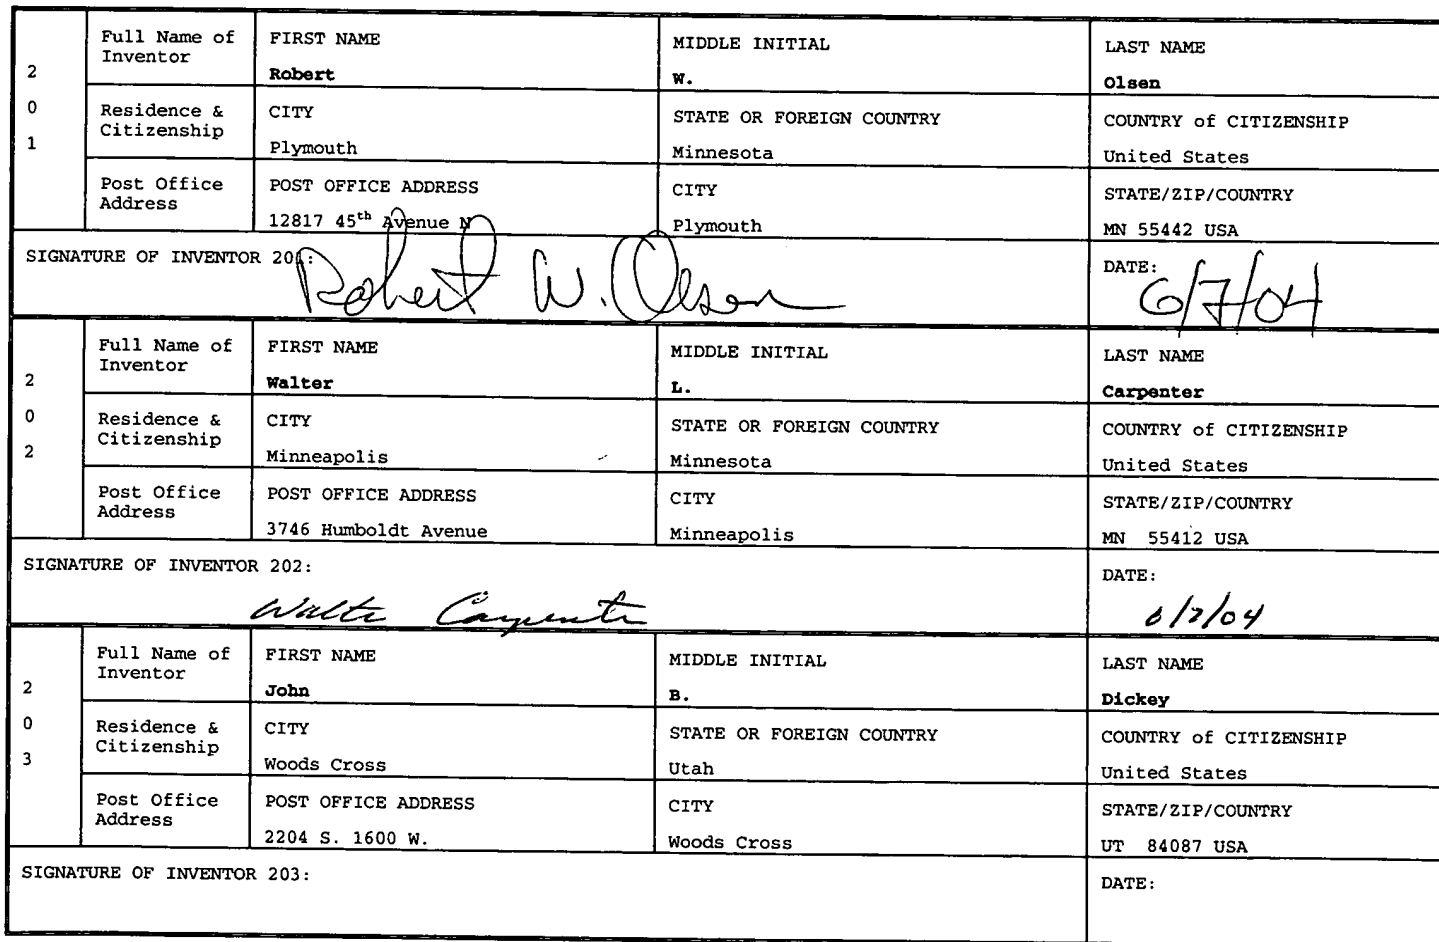 2
0
1
Full Name of Inventor
FIRST NAME
Robert
MIDDLE INITIAL
W.
LAST NAME
Olsen
Residence & Citizenship
CITY
Plymouth
STATE OR FOREIGN COUNTRY
Minnesota
COUNTRY of CITIZENSHIP
United States
Post Office Address
POST OFFICE ADDRESS
12817 45th Avenue N
CITY
Plymouth
STATE/ZIP/COUNTRY
MN 55442 USA
SIGNATURE OF INVENTOR 201:
Robert W. Olsen
DATE:
6/7/04
2
0
2
Full Name of Inventor
FIRST NAME
Walter
MIDDLE INITIAL
L.
LAST NAME
Carpenter
Residence & Citizenship
CITY
Minneapolis
STATE OR FOREIGN COUNTRY
Minnesota
COUNTRY of CITIZENSHIP
United States
Post Office Address
POST OFFICE ADDRESS
3746 Humboldt Avenue
CITY
Minneapolis
STATE/ZIP/COUNTRY
MN 55412 USA
SIGNATURE OF INVENTOR 202:
Walter Carpenter
DATE:
6/7/04
2
0
3
Full Name of Inventor
FIRST NAME
John
MIDDLE INITIAL
B.
LAST NAME
Dickey
Residence & Citizenship
CITY
Woods Cross
STATE OR FOREIGN COUNTRY
Utah
COUNTRY of CITIZENSHIP
United States
Post Office Address
POST OFFICE ADDRESS
2204 S. 1600 W.
CITY
Woods Cross
STATE/ZIP/COUNTRY
UT 84087 USA
SIGNATURE OF INVENTOR 203:
DATE: